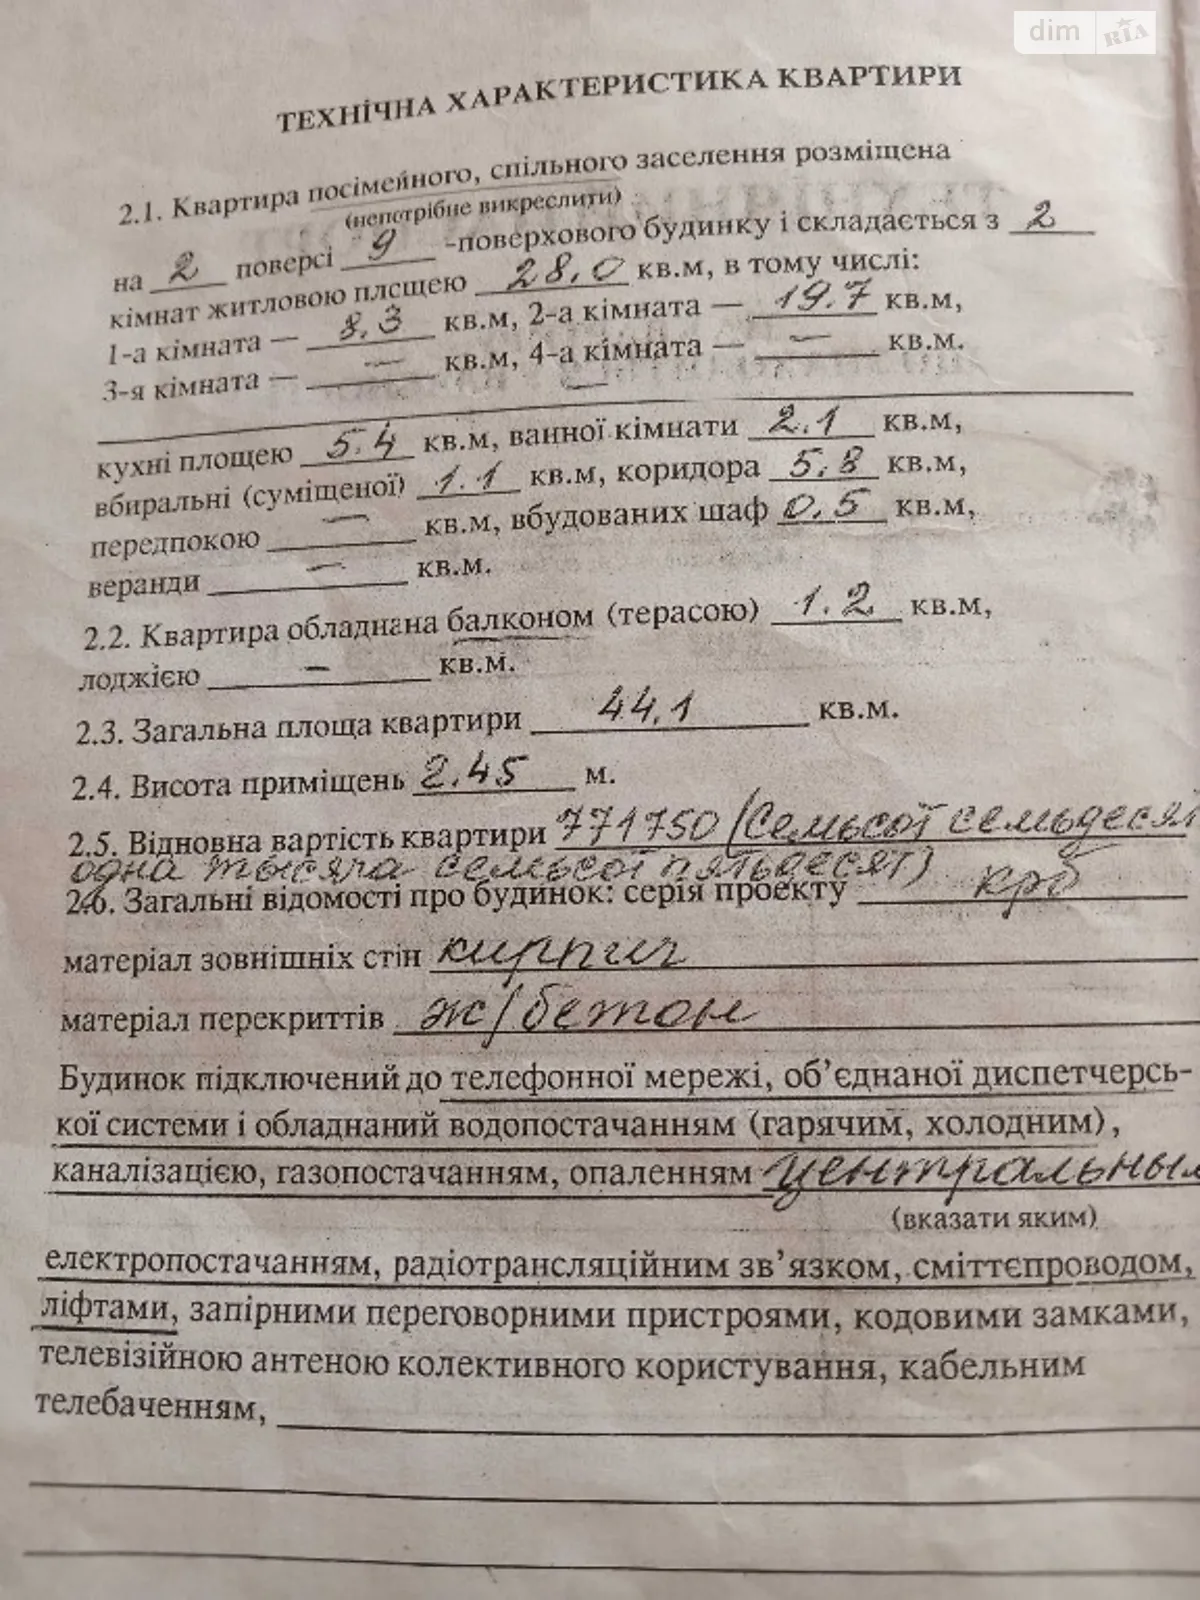 dim RIA
ТЕХНІЧНА ХАРАКТЕРИСТИКА КВАРТИРИ
2.1. Квартира посімейного, спільного заселення розміщена
(непотрібне викреслити)
на 2 поверсі 9 -поверхового будинку і складається з 2
кімнат житловою площею 28.0 кв.м, в тому числі:
1-а кімната — 8.3 кв.м, 2-а кімната — 19.7 кв.м,
3-я кімната — — кв.м, 4-а кімната — — кв.м.
—
кухні площею 5.4 кв.м, ванної кімнати 2.1 кв.м,
вбиральні (суміщеної) 1.1 кв.м, коридора 5.8 кв.м,
передпокою — кв.м, вбудованих шаф 0.5 кв.м,
веранди — кв.м.
2.2. Квартира обладнана балконом (терасою) 1.2 кв.м,
лоджією — кв.м.
2.3. Загальна площа квартири 44.1 кв.м.
2.4. Висота приміщень 2.45 м.
2.5. Відновна вартість квартири 771750 (Семьсот семьдесят
одна тысяча семьсот пятьдесят)
2.6. Загальні відомості про будинок: серія проекту крб
матеріал зовнішніх стін кирпич
матеріал перекриттів ж/бетон
Будинок підключений до телефонної мережі, об’єднаної диспетчерсь-
кої системи і обладнаний водопостачанням (гарячим, холодним),
каналізацією, газопостачанням, опаленням центральным
(вказати яким)
електропостачанням, радіотрансляційним зв’язком, сміттєпроводом,
ліфтами, запірними переговорними пристроями, кодовими замками,
телевізійною антеною колективного користування, кабельним
телебаченням,